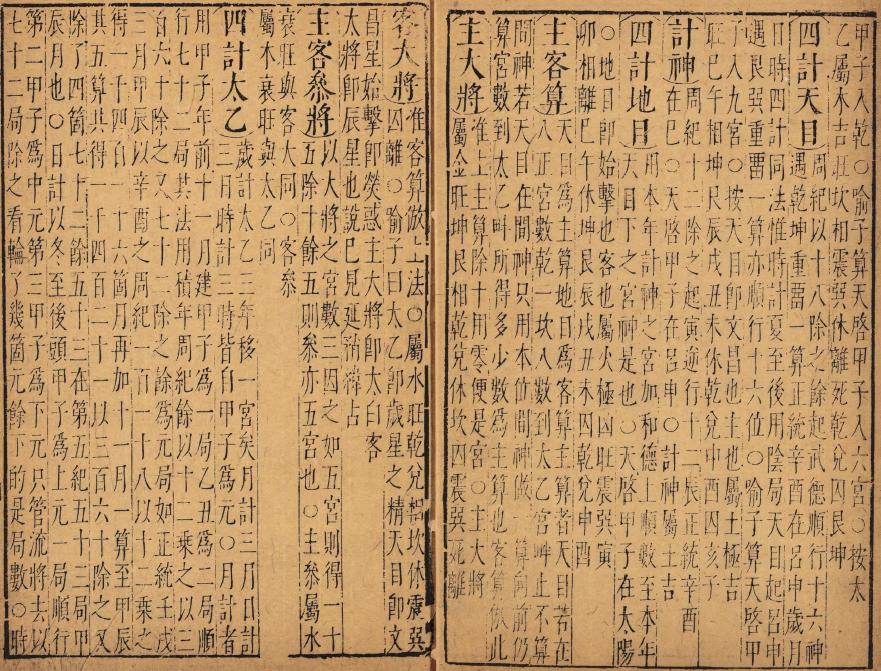 甲子入乾〇喻子算天啓甲子入六宮〇按太
乙屬木吉旺坎相震巽休離死乾兌囚艮坤
四計天目 周紀以十八除之餘起武德順行十六神
遇乾坤重畱一算正統辛酉在呂申歲月
日時四計同法惟時計夏至後用陰局天目起呂申
遇艮巽重畱一算亦順行十六位〇喻子算天啓甲
子入九宮〇按天目卽文昌也主也屬土極吉
旺巳午相坤艮辰戌丑未休乾兌申酉囚亥子
計神 周紀十二除之起寅逆行十二辰正統辛酉
在巳〇天啓甲子在呂申〇計神屬土吉
四計地目 用本年計神之宮加和德上順數至本年
天目下之宮神是也〇天啓甲子在太陽
〇地目卽始擊也客也屬火極囚旺震巽寅
卯相離巳午休坤艮辰戌丑未囚乾兌申酉
主客算 天目爲主算地目爲客算主算者天目若在
八正宮數乾一坎八數到太乙宮畔止不算
間神若天目在間神只用本位間神做一算向前仍
算宮數到太乙畔所得多少數爲主算也客算倣此
主大將 准上主算除十用零便是宮〇主大將
屬金旺坤艮相乾兌休坎囚震巽死離
客大將 准客算倣上法〇屬水旺乾兌相坎休震巽
囚離〇喻子曰太乙卽歲星之精天目卽文
昌星始擊卽熒惑主大將卽太白客
太將卽辰星也說巳見延緯占
主客參將 以大將之宮數三因之如五宮則得一十
五除十餘五則參亦五宮也〇主參屬水
衰旺與客大同〇客參
屬木衰旺與太乙同
四計太乙 歲計太乙三年移一宮矣月計三月日計
三日時計三時皆自甲子爲元〇月計者
用甲子年前十一月建甲子爲一局乙丑爲二局順
行七十二局其法用積年周紀餘以十二乘之以三
百六十除之又七十二除之餘爲元局如正統壬戌
三月甲辰以辛酉之周紀一百一十八以十二乘之
得一千四百一十六箇月再加十一月一算至甲辰
其五算共得一千四百二十一以三百六十除之又
除了四箇七十二餘五十三在第五紀五十三局甲
辰月也〇日計以冬至後頭甲子爲上元一局順行
第二甲子爲中元第三甲子爲下元只管流將去以
七十二局除之看輪了幾箇元餘下的是局數〇時